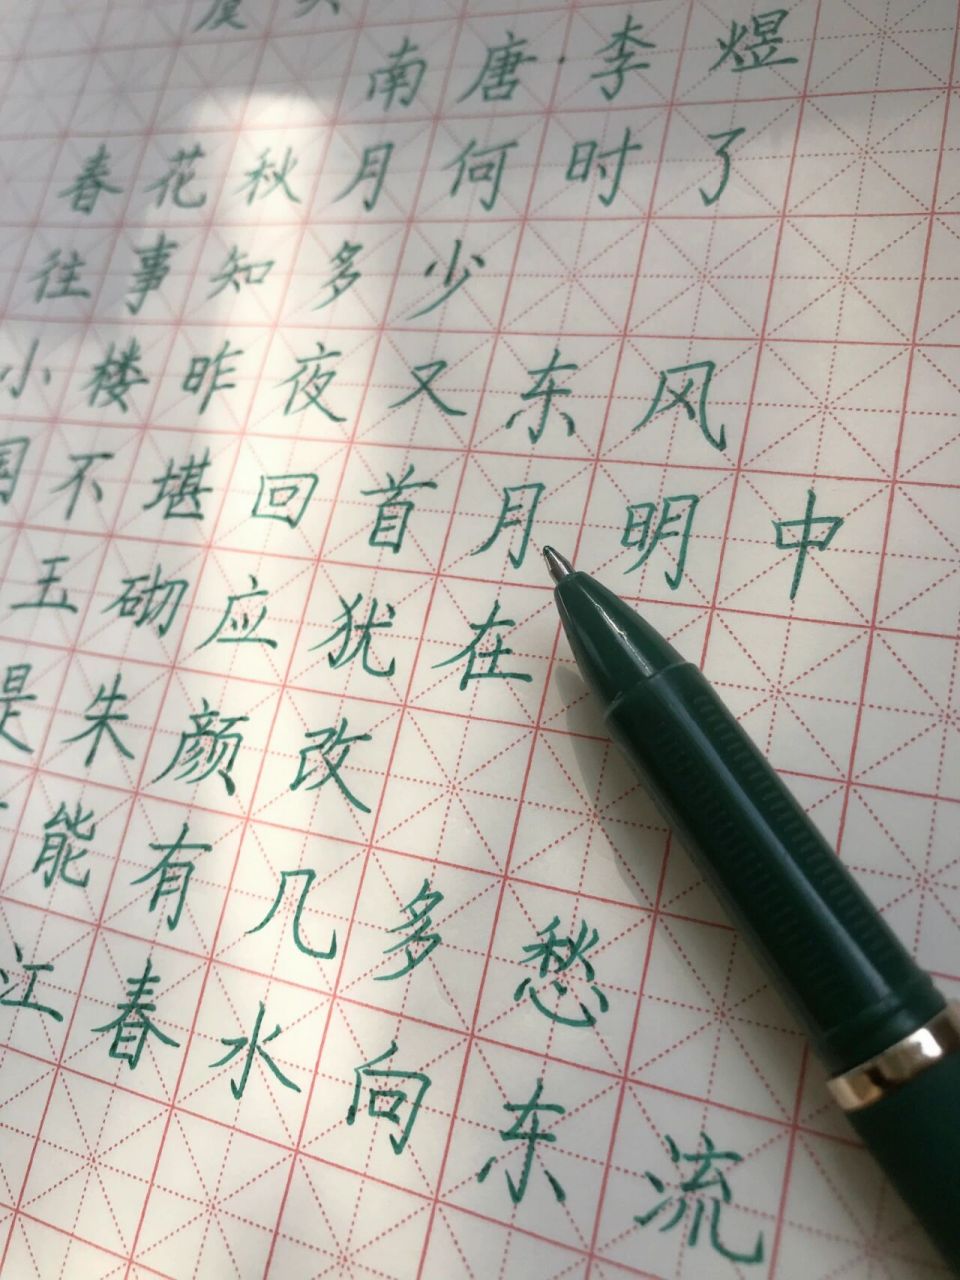 南唐·李煜
春花秋月何时了
往事知多少
小楼昨夜又东风
国不堪回首月明中
玉砌应犹在
是朱颜改
能有几多愁
江春水向东流